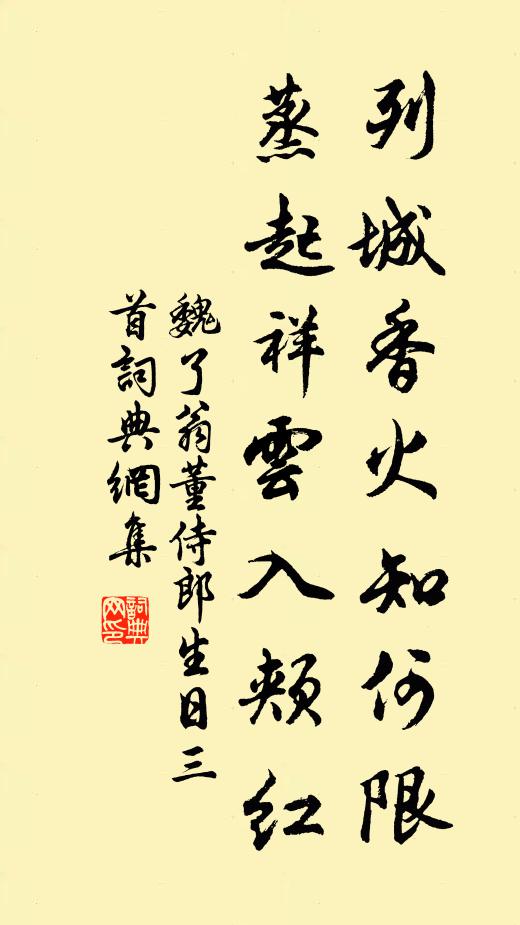 列城香火知何限
蒸起祥雲入頰紅
魏了翁董侍郎生日三
首詞典網集
詞典网印